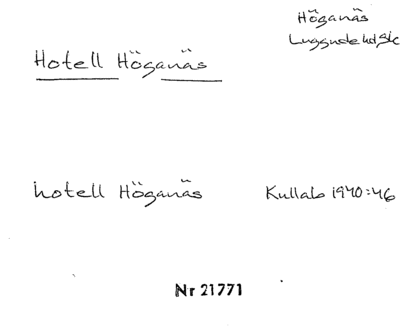 Höganäs
Luggude hd Sk
Hotell Höganäs
hotell Höganäs Kullab 1940:46
Nr 21771